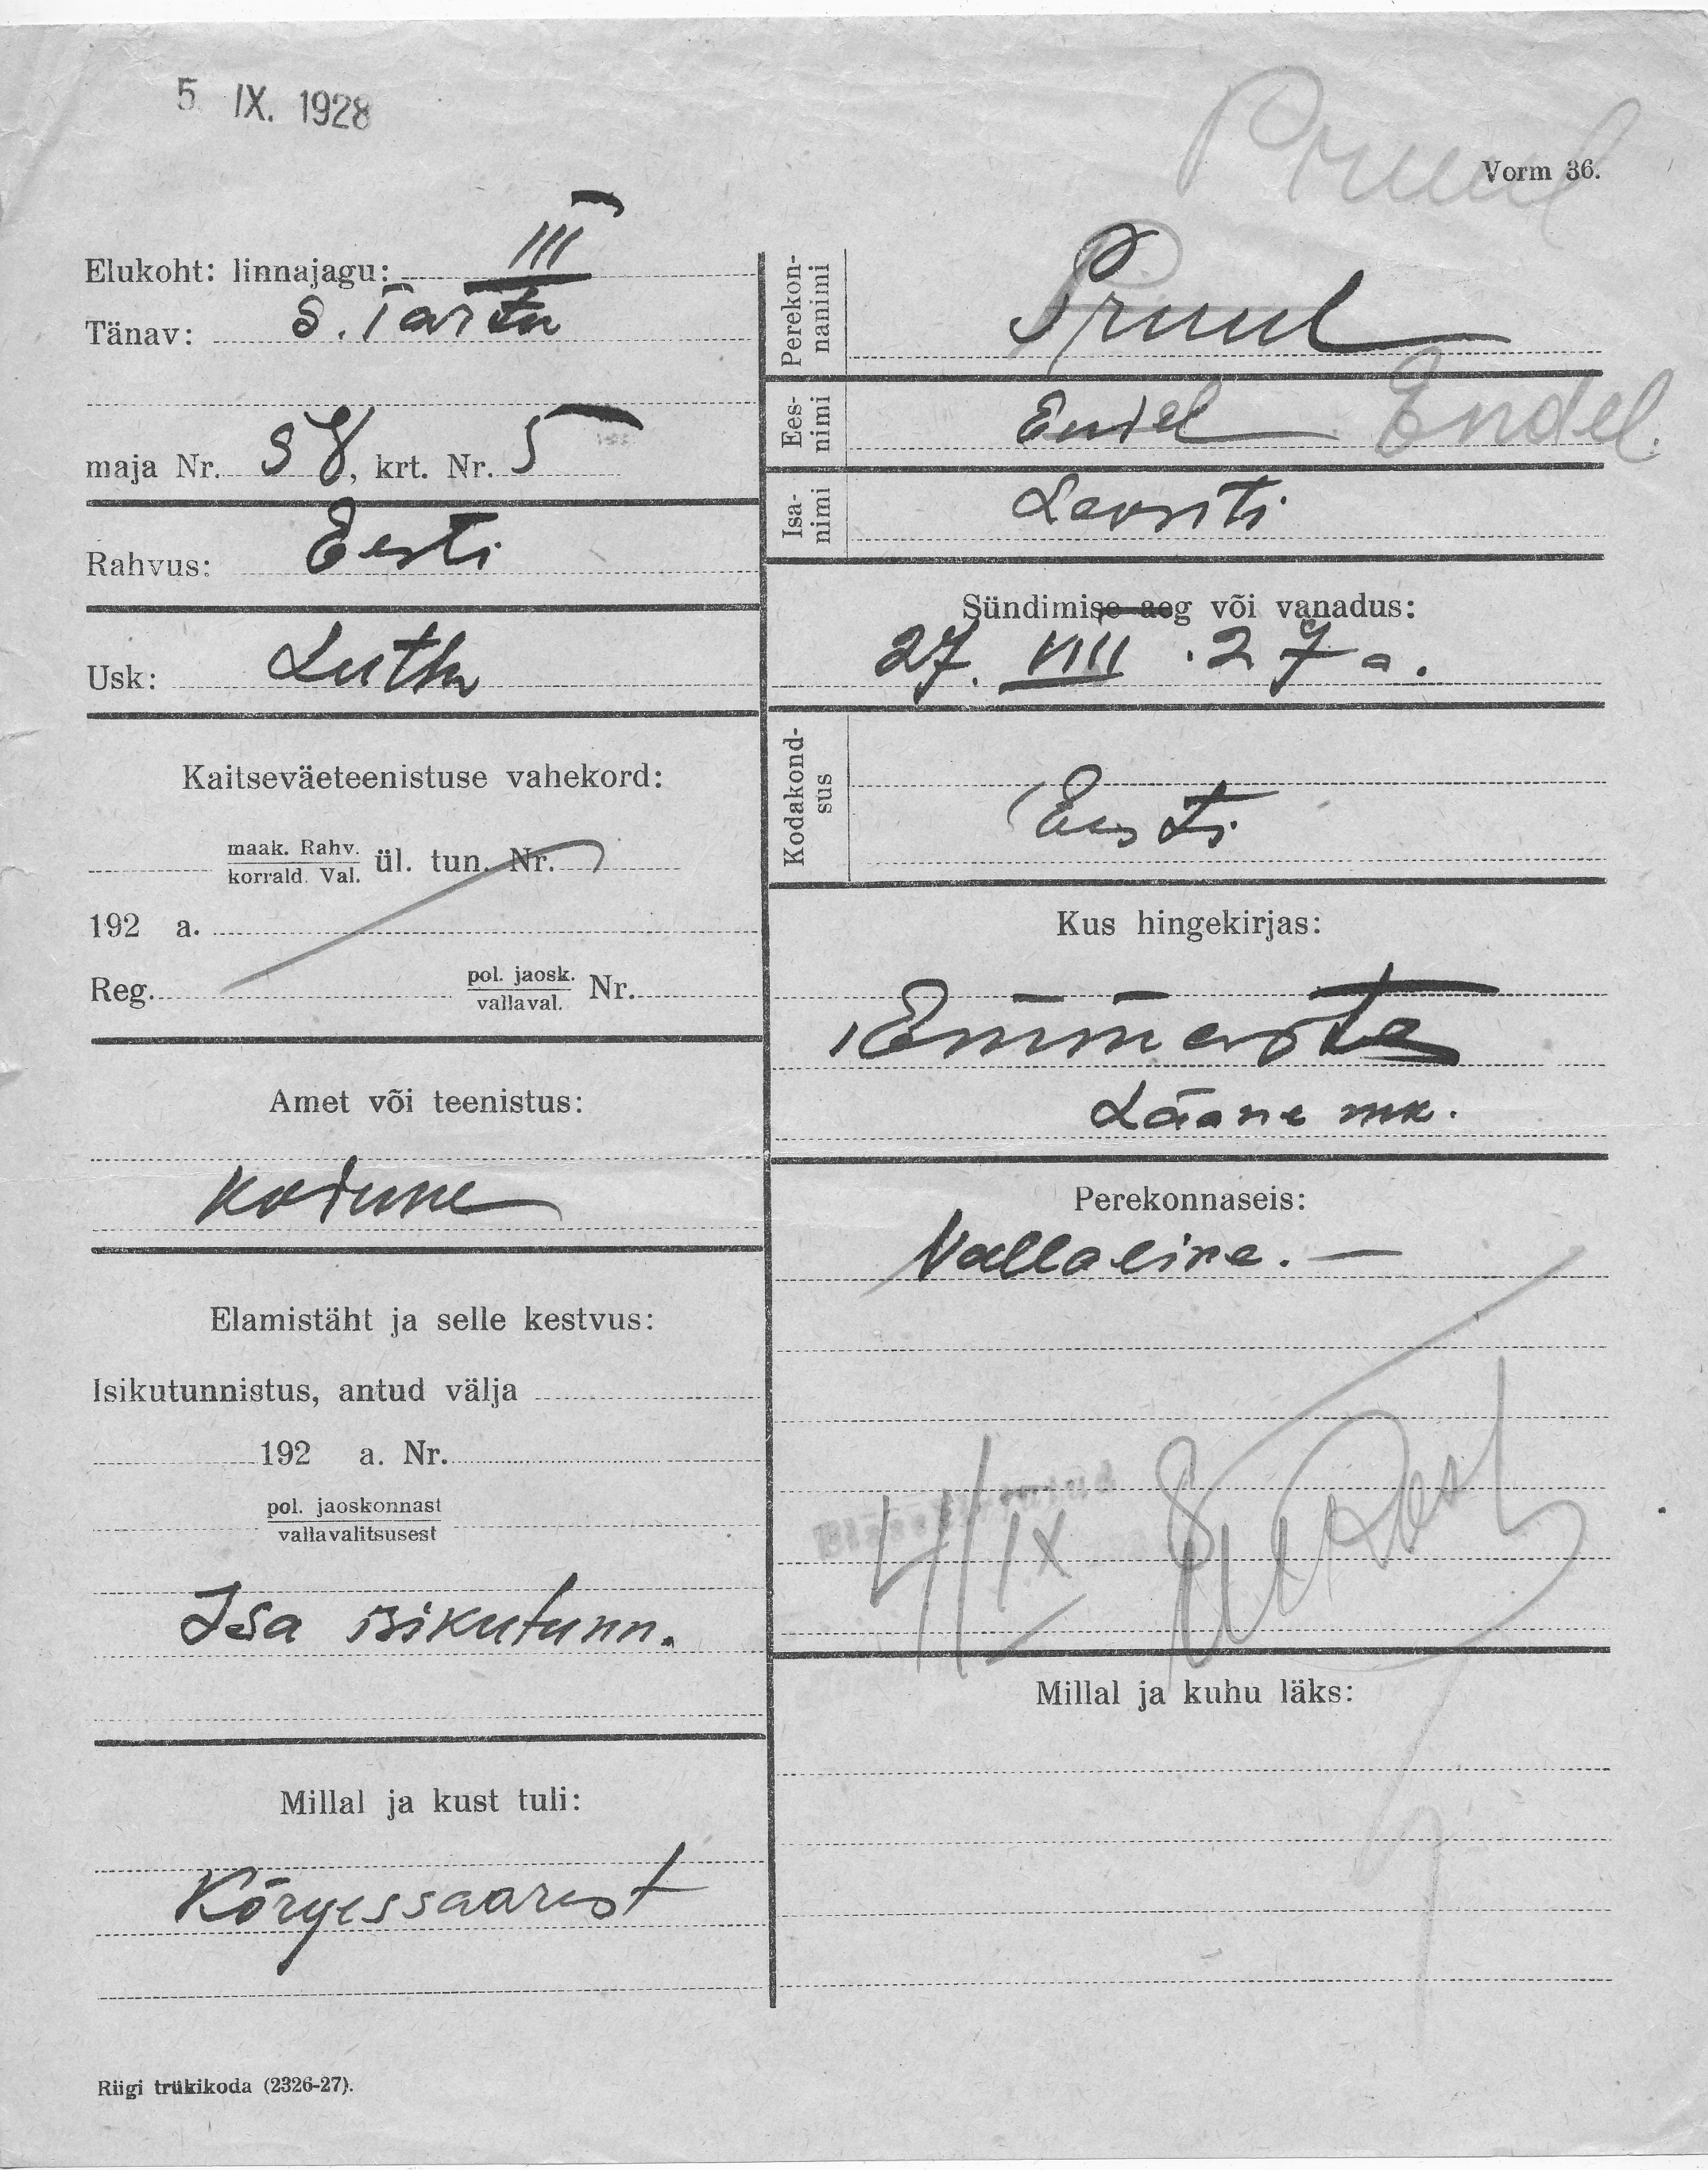 5 IX. 1928
Pruul
Vorm 36.
Elukoht: linnajagu: III
Tänav: S. Tartu
maja Nr. 98, krt. Nr. 5
Rahvus: Eesti
Usk: Luth
Kaitseväeteenistuse vahekord:
maak. Rahv.
korrald. Val. ül. tun. Nr.
192 a.
Reg. pol. jaosk.
vallaval. Nr.
Amet või teenistus:
Kodune
Elamistäht ja selle kestvus:
Isikutunnistus, antud välja
192 a. Nr.
pol. jaoskonnast
vallavalitsusest
Isa isikutunn.
Millal ja kust tuli:
Kõrgessaarest
Riigi trükikoda (2326-27).
Perekon-
nanimi
Pruul
Ees-
nimi
Endel Endel.
Isa-
nimi
Sündimise aeg või vanadus:
27. VIII . 27 a.
Kodakond-
sus
Eesti
Kus hingekirjas:
Emmaste
Lääne mk.
Perekonnaseis:
Vallaline. —
4/IX
Millal ja kuhu läks: